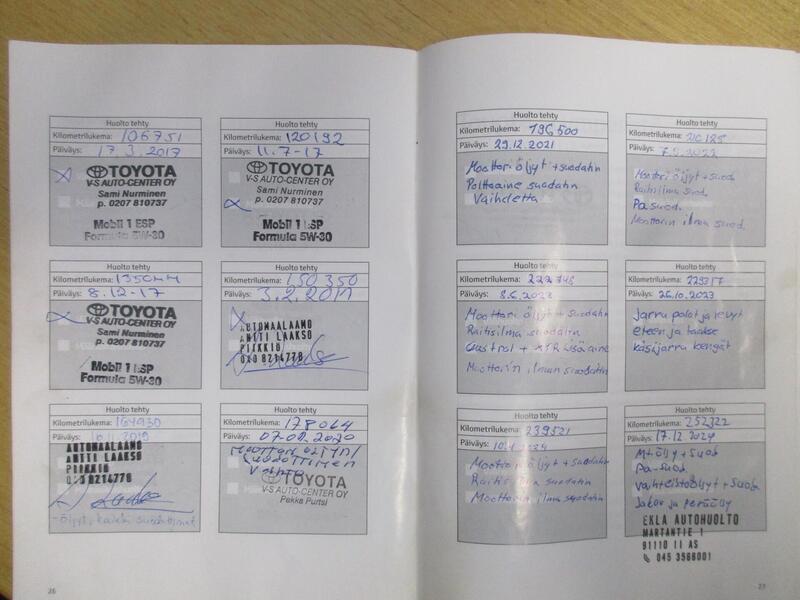 Huolto tehty
Kilometrilukema: 106751
Päiväys: 17.3.2017
TOYOTA
V-S AUTO-CENTER OY
Sami Nurminen
p. 0207 810737
Mobil 1 ESP
Formula 5W-30
Huolto tehty
Kilometrilukema: 120192
Päiväys: 11.7-17
TOYOTA
V-S AUTO-CENTER OY
Sami Nurminen
p. 0207 810737
Mobil 1 ESP
Formula 5W-30
Huolto tehty
Kilometrilukema:
Päiväys: 8.12-17
TOYOTA
V-S AUTO-CENTER OY
Sami Nurminen
p. 0207 810737
Mobil 1 ESP
Formula 5W-30
Huolto tehty
Kilometrilukema: 150 350
Päiväys:
AUTOMAALAAMO
ANTTI LAAKSO
PIIKKIO
Huolto tehty
Kilometrilukema: 164930
Päiväys:
AUTOMAALAAMO
ANTTI LAAKSO
PIIKKIO
Huolto tehty
Kilometrilukema: 178064
Päiväys: 07.02.2020
Moottori öljyn/
Suodattimen
Vaihto
TOYOTA
V-S AUTO-CENTER OY
Pekka Purtsi
26
Huolto tehty
Kilometrilukema: 196500
Päiväys: 29.12.2021
Moottori öljyt + suodatin
Polttoaine suodatin
Vaihdettu
Huolto tehty
Kilometrilukema: 210185
Päiväys:
Moottori öljyt + suod.
Raitisilma suod.
Pa suod.
Moottorin ilma suod.
Huolto tehty
Kilometrilukema:
Päiväys: 8.6.2023
Moottori öljyt + suodatin
Raitisilma suodatin
Moottorin ilman suodatin
Huolto tehty
Kilometrilukema:
Päiväys: 26.10.2023
Jarru palat ja levyt
eteen ja taakse
käsijarru kengät
Huolto tehty
Kilometrilukema: 239521
Päiväys:
Moottori öljyt + suodatin
Raitis ilma suodatin
Moottorin ilma suodatin
Huolto tehty
Kilometrilukema: 252322
Päiväys: 17.12.2024
M-öljy + suod
pa-suod.
vaihteistoöljyt + suod
Jakov ja peräöljy
EKLA AUTOHUOLTO
MARTANTIE 1
91110 II AS
045 3566001
27